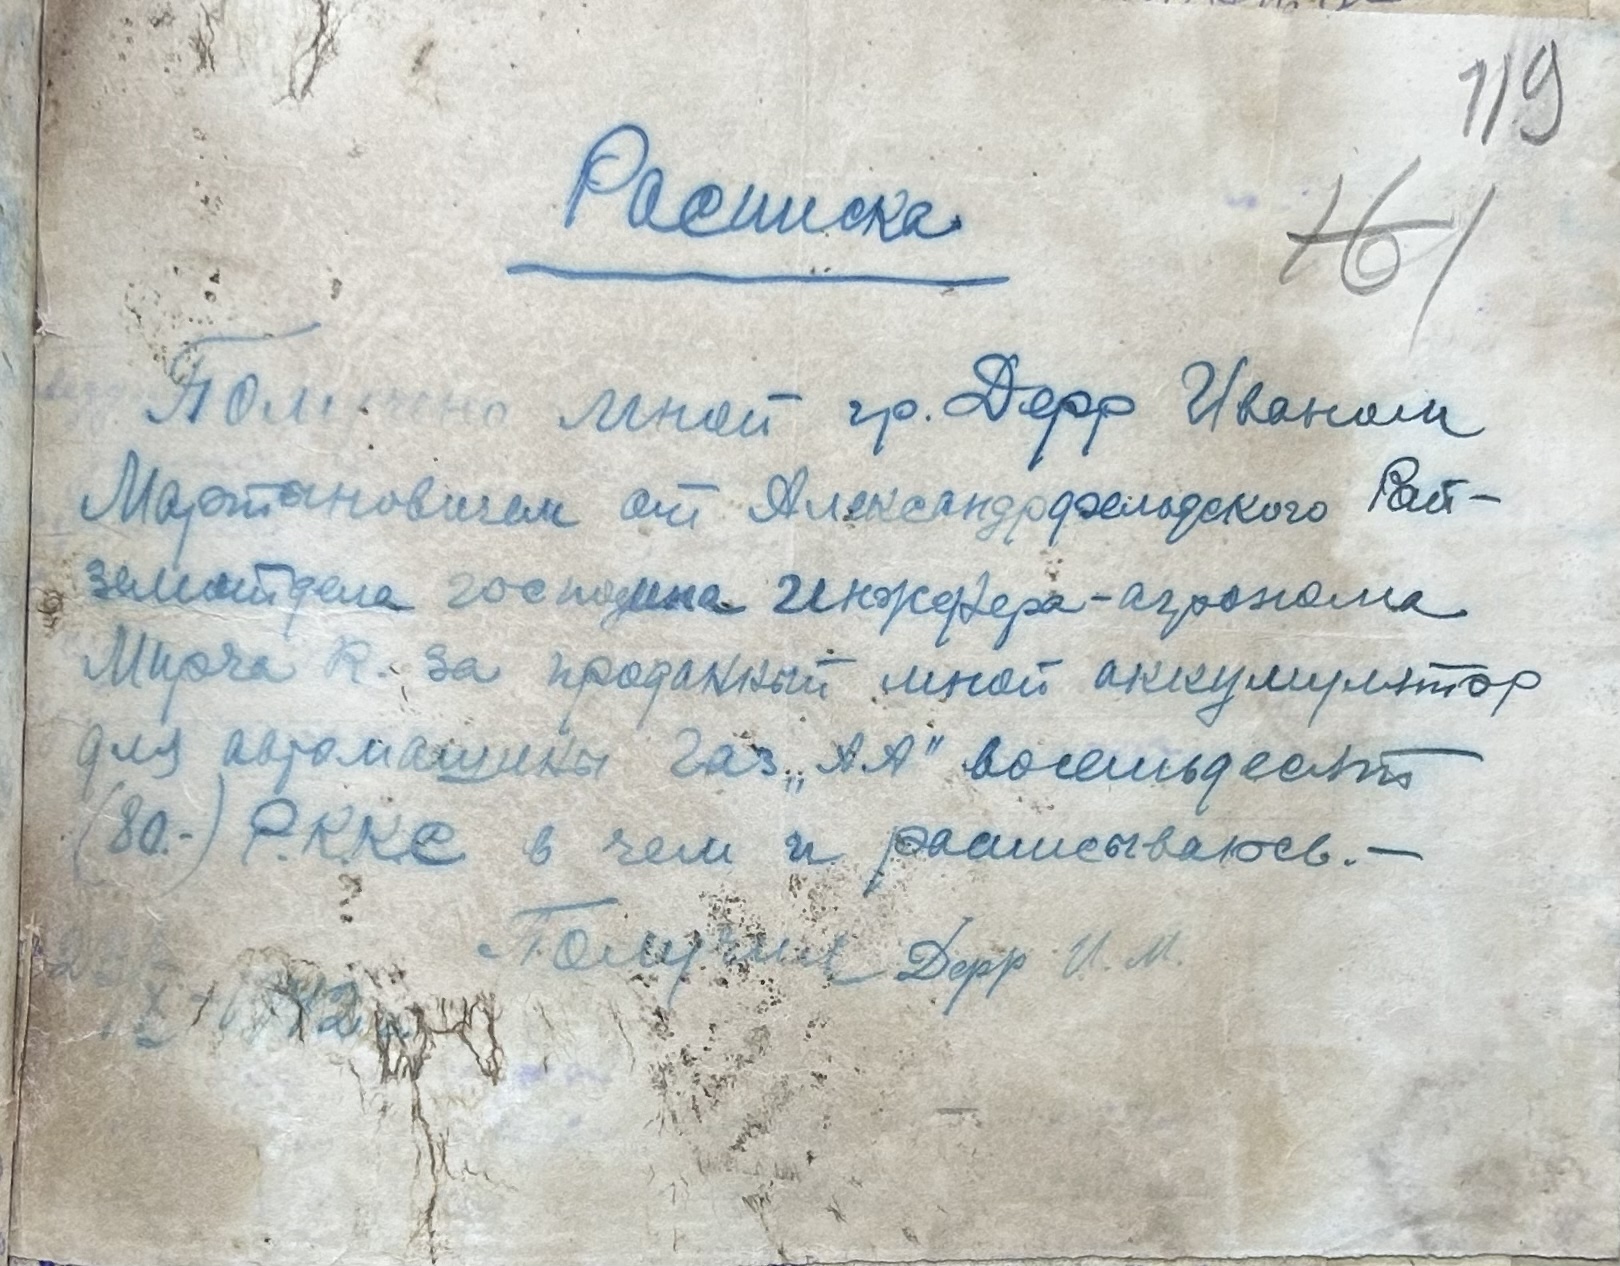 119
161
Расписка
Получено мной гр. Дерр Иваном
Мартыновичем от Александрфельдского Рай-
земотдела господина Инженера-агронома
Мирча К. за проданный мной аккумулятор
для автомашины Газ „АА" восемьдесят
(80.-) Р.К.К.С в чем и расписываюсь.-
Получил Дерр И. М.
42